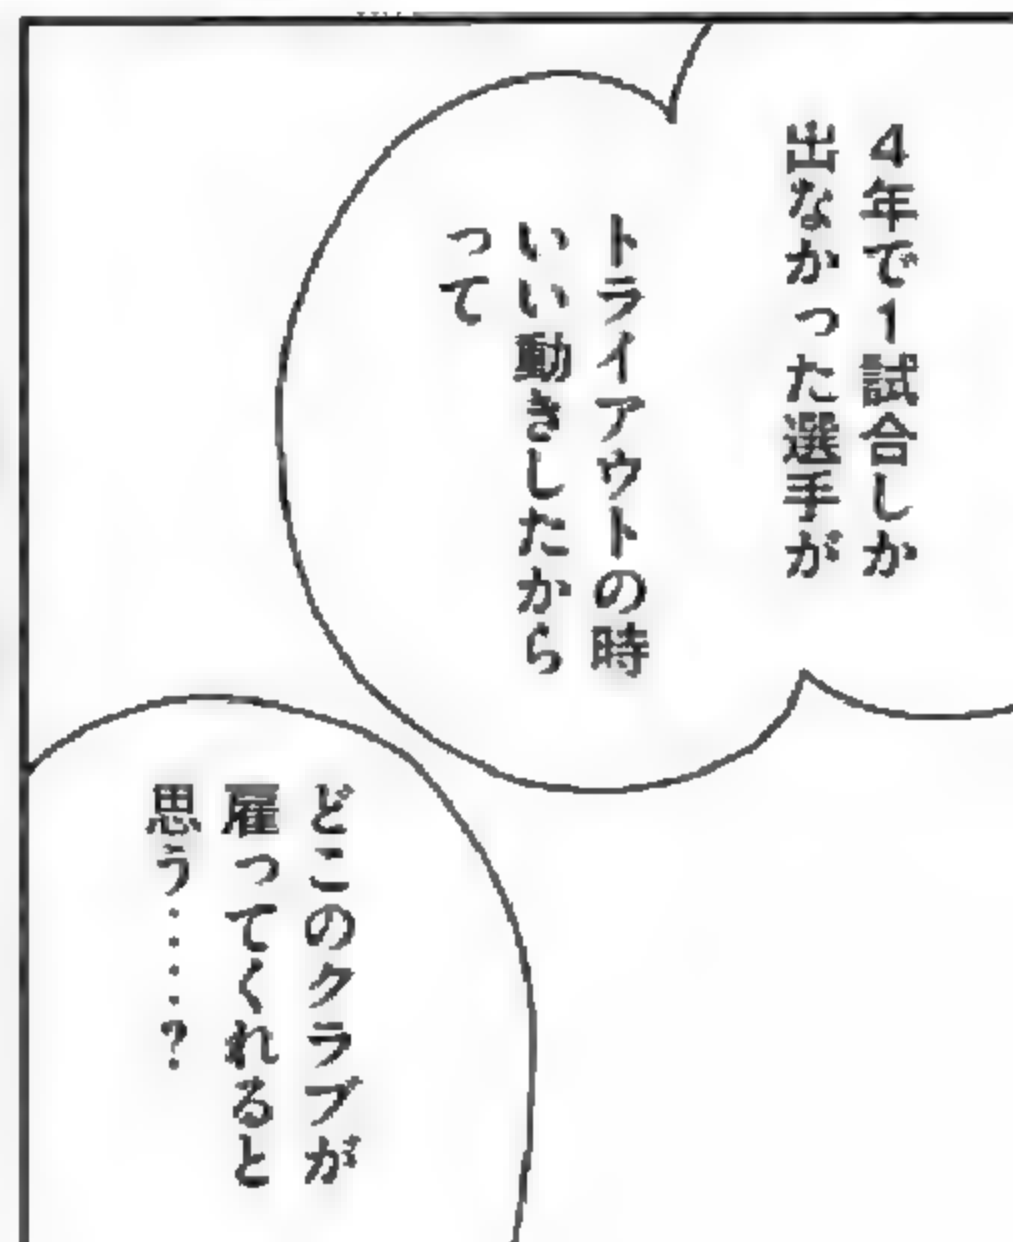 4年で1試合しか
出なかった選手が
トライアウトの時
いい動きしたから
って
どこのクラブが
雇ってくれると
思う……?